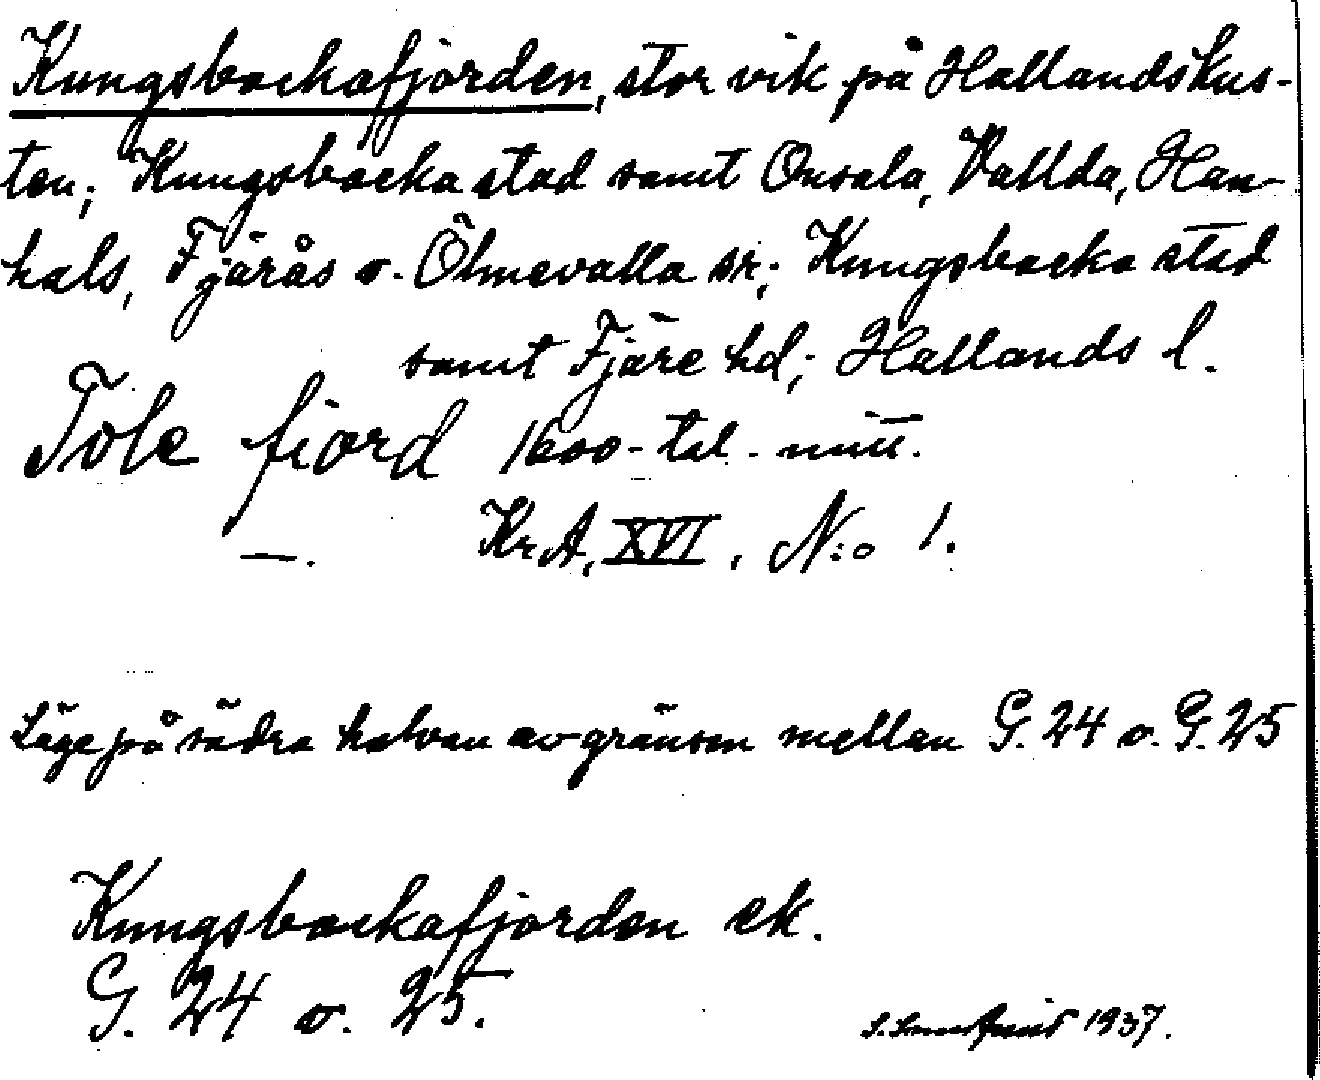 Kungsbackafjorden, stor vik på Hallandskus-
ten; Kungsbacka stad samt Onsala, Vallda, Han-
hals, Fjärås o. Ölmevalla sn; Kungsbacka stad
samt Fjäre hd; Hallands l.
Tole fiord 1600-tal. mitt.
—. KrA, XVI, N:o 1.
Läge på södra halvan av gränsen mellan G. 24 o. G. 25
Kungsbackafjorden ek.
G. 24 o. 25.
1937.